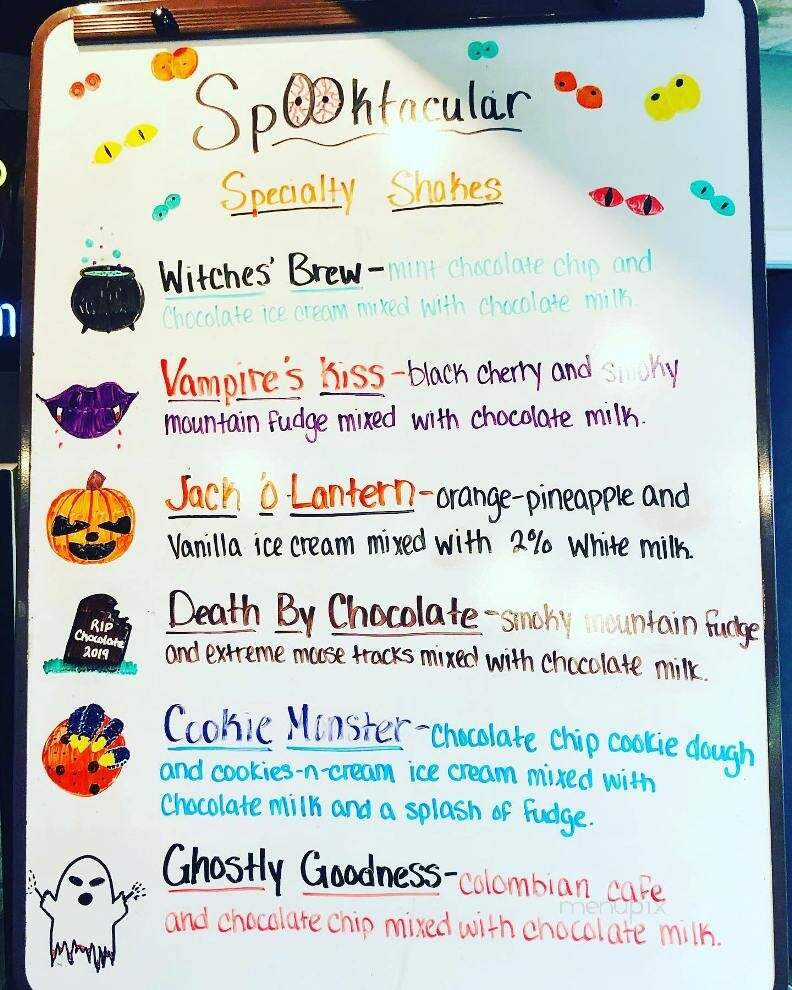 Spooktacular
Specialty Shakes
Witches' Brew - mint chocolate chip and
Chocolate ice cream mixed with chocolate milk.
Vampire's Kiss - black cherry and smoky
mountain fudge mixed with chocolate milk.
Jack o Lantern - orange-pineapple and
Vanilla ice cream mixed with 2% White milk.
RIP
Chocolate
2019
Death By Chocolate - smoky mountain fudge
and extreme moose tracks mixed with chocolate milk.
Cookie Monster - Chocolate chip cookie dough
and cookies-n-cream ice cream mixed with
Chocolate milk and a splash of fudge.
Ghostly Goodness - colombian cafe
and chocolate chip mixed with chocolate milk.
menupix